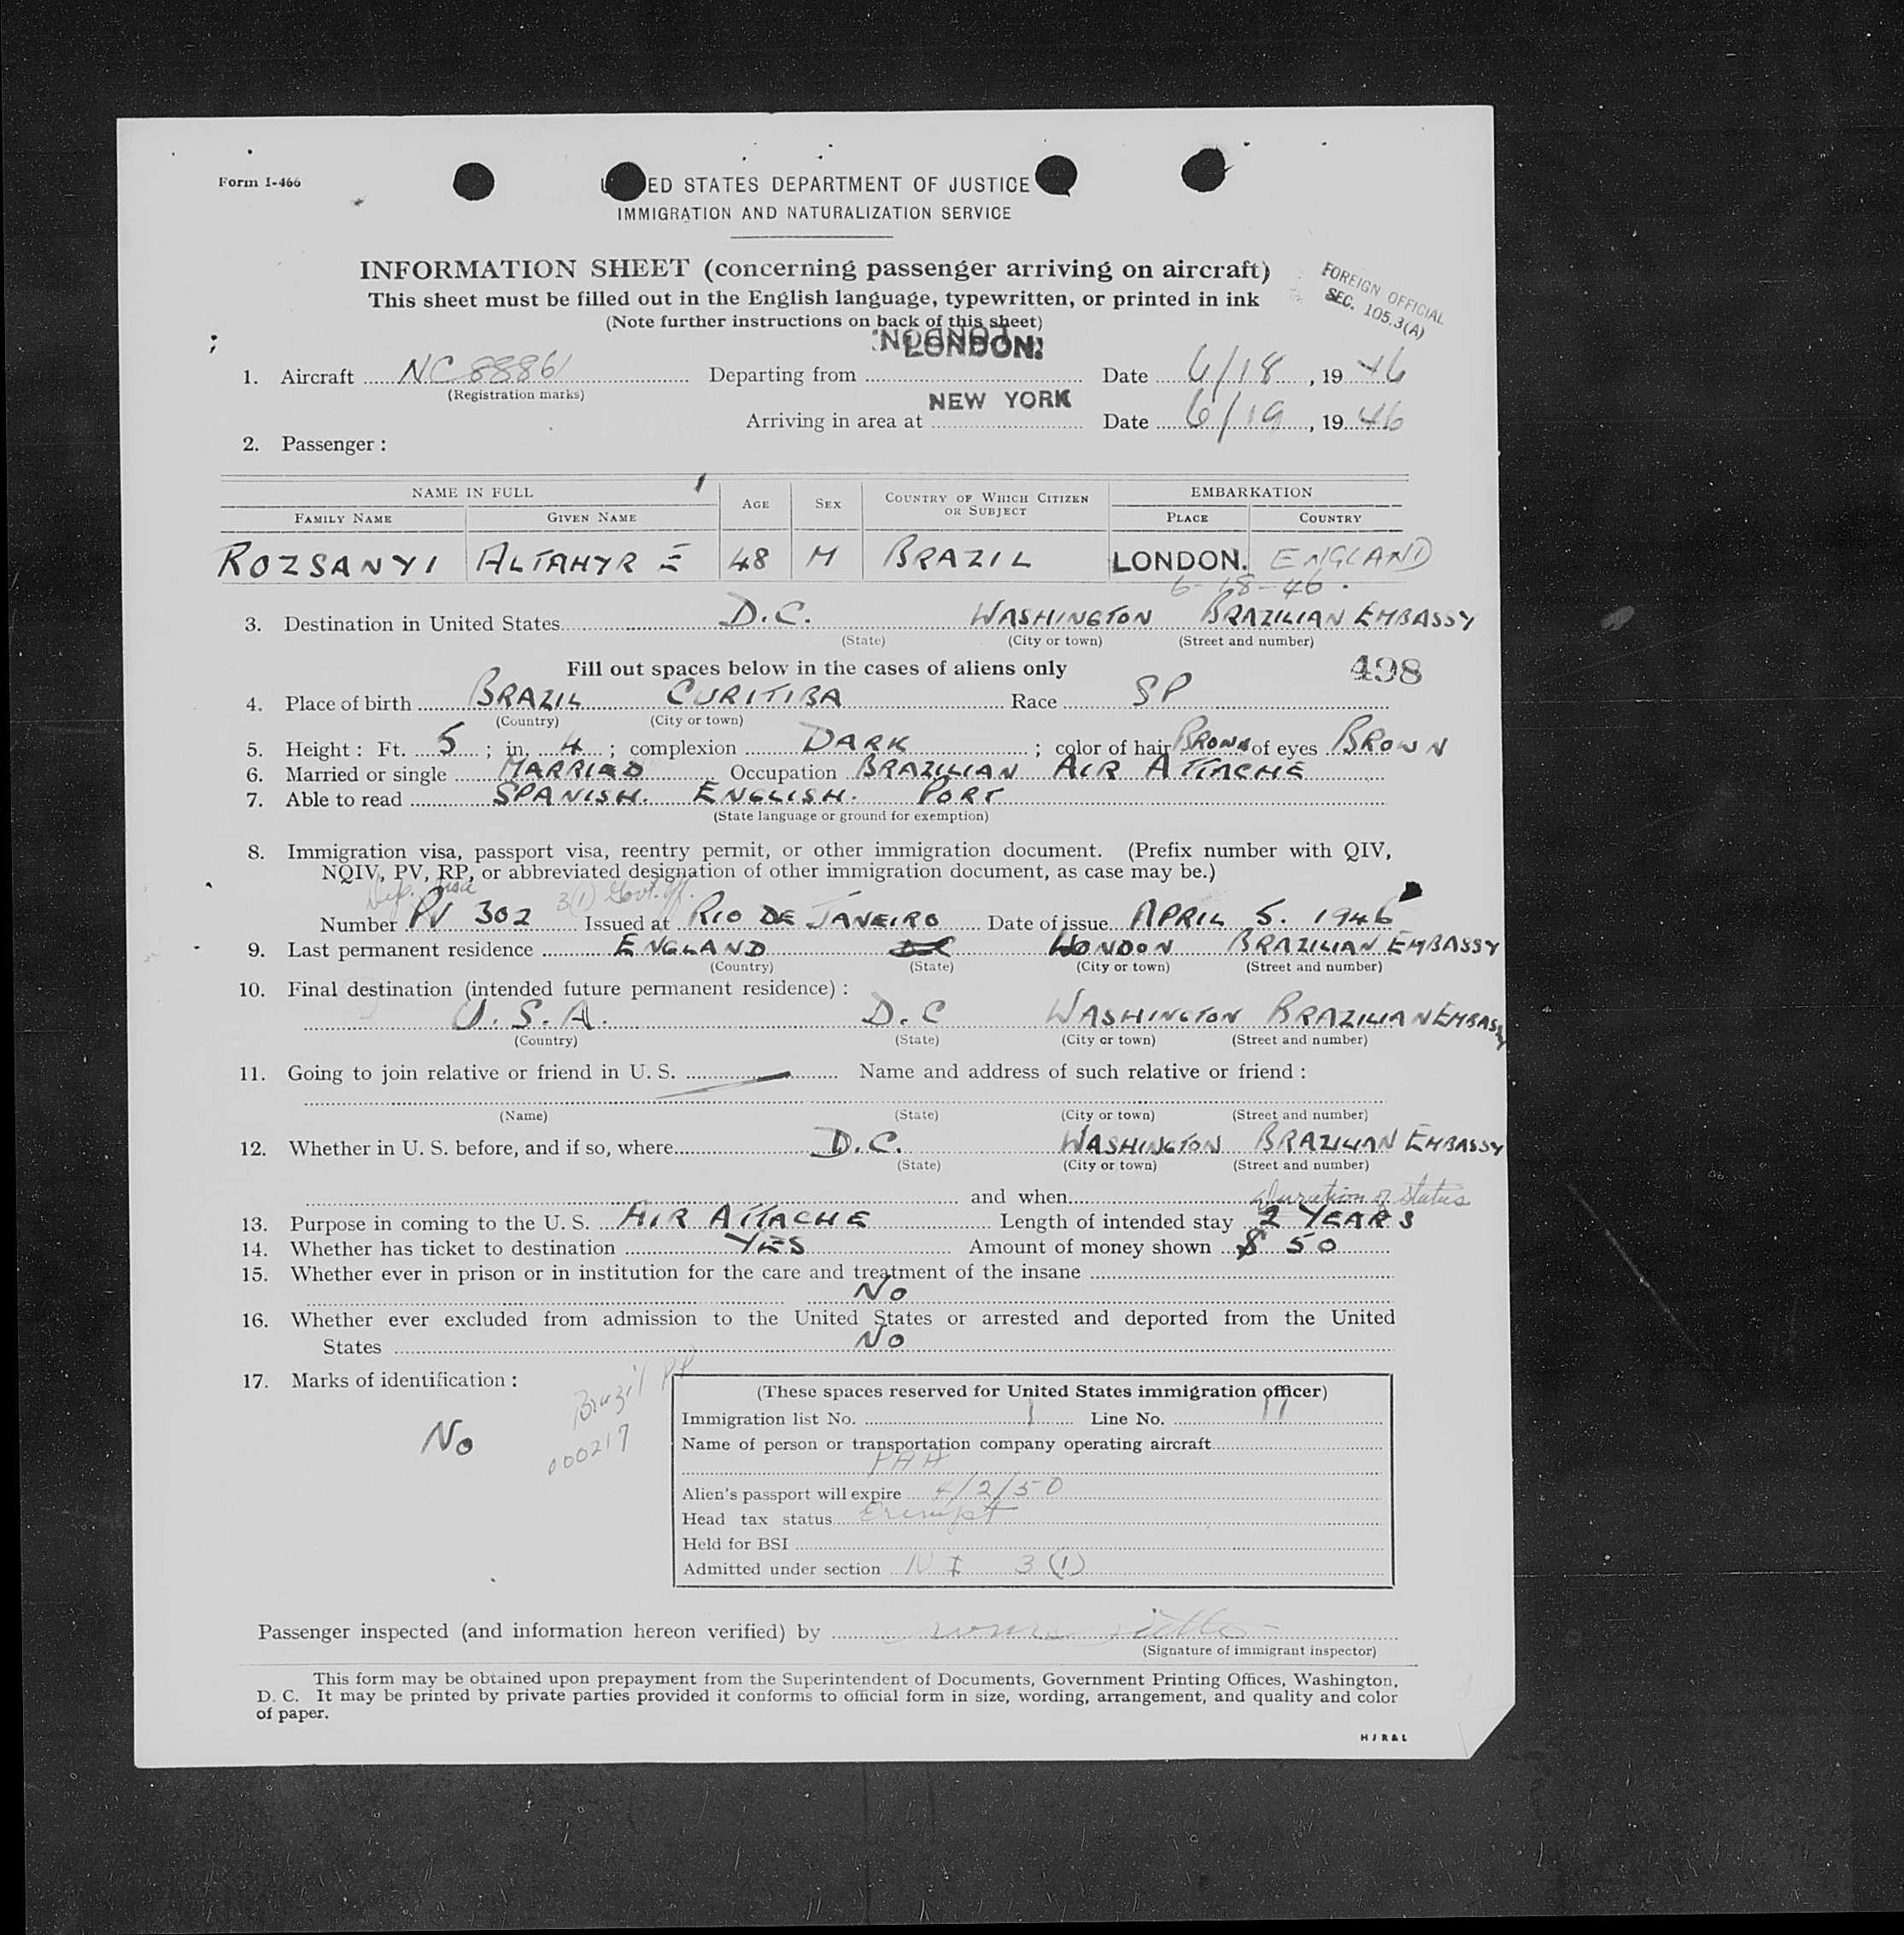 Form I-466
ED STATES DEPARTMENT OF JUSTICE
IMMIGRATION AND NATURALIZATION SERVICE
INFORMATION SHEET (concerning passenger arriving on aircraft)
This sheet must be filled out in the English language, typewritten, or printed in ink
(Note further instructions on back of this sheet)
FOREIGN OFFICIAL
SEC. 105.3(A)
LONDON.
1. Aircraft NC 88861 Departing from Date 6/18, 1946
(Registration marks)
NEW YORK
Arriving in area at Date 6/19, 1946
2. Passenger :
NAME IN FULL AGE SEX COUNTRY OF WHICH CITIZEN OR SUBJECT EMBARKATION
FAMILY NAME GIVEN NAME PLACE COUNTRY
ROZSANYI ALTAHYR E 48 M BRAZIL LONDON. ENGLAND
6-18-46.
3. Destination in United States D.C. WASHINGTON BRAZILIAN EMBASSY
(State) (City or town) (Street and number)
Fill out spaces below in the cases of aliens only 498
4. Place of birth BRAZIL CURITIBA Race SP
(Country) (City or town)
5. Height : Ft. 5 ; in. 4 ; complexion DARK ; color of hair BROWN of eyes BROWN
6. Married or single MARRIED Occupation BRAZILIAN AIR ATTACHE
7. Able to read SPANISH. ENGLISH. PORT
(State language or ground for exemption)
8. Immigration visa, passport visa, reentry permit, or other immigration document. (Prefix number with QIV,
NQIV, PV, RP, or abbreviated designation of other immigration document, as case may be.)
Dip. visa 3(1) Govt. off.
Number PV 302 Issued at RIO DE JANEIRO Date of issue APRIL 5. 1946
9. Last permanent residence ENGLAND LONDON BRAZILIAN EMBASSY
(Country) (State) (City or town) (Street and number)
10. Final destination (intended future permanent residence) :
U.S.A. D.C WASHINGTON BRAZILIAN EMBASSY
(Country) (State) (City or town) (Street and number)
11. Going to join relative or friend in U. S. — Name and address of such relative or friend :
(Name) (State) (City or town) (Street and number)
12. Whether in U. S. before, and if so, where D.C. WASHINGTON BRAZILIAN EMBASSY
(State) (City or town) (Street and number)
and when
duration of status
13. Purpose in coming to the U. S. AIR ATTACHE Length of intended stay 2 YEARS
14. Whether has ticket to destination YES Amount of money shown $ 50
15. Whether ever in prison or in institution for the care and treatment of the insane
No
16. Whether ever excluded from admission to the United States or arrested and deported from the United
States No
17. Marks of identification :
No
Brazil PP
000217
(These spaces reserved for United States immigration officer)
Immigration list No. 1 Line No. 11
Name of person or transportation company operating aircraft
PAA
Alien's passport will expire 4/2/50
Head tax status Exempt
Held for BSI
Admitted under section NI 3 (1)
Passenger inspected (and information hereon verified) by
(Signature of immigrant inspector)
This form may be obtained upon prepayment from the Superintendent of Documents, Government Printing Offices, Washington,
D. C. It may be printed by private parties provided it conforms to official form in size, wording, arrangement, and quality and color
of paper.
HJR&L